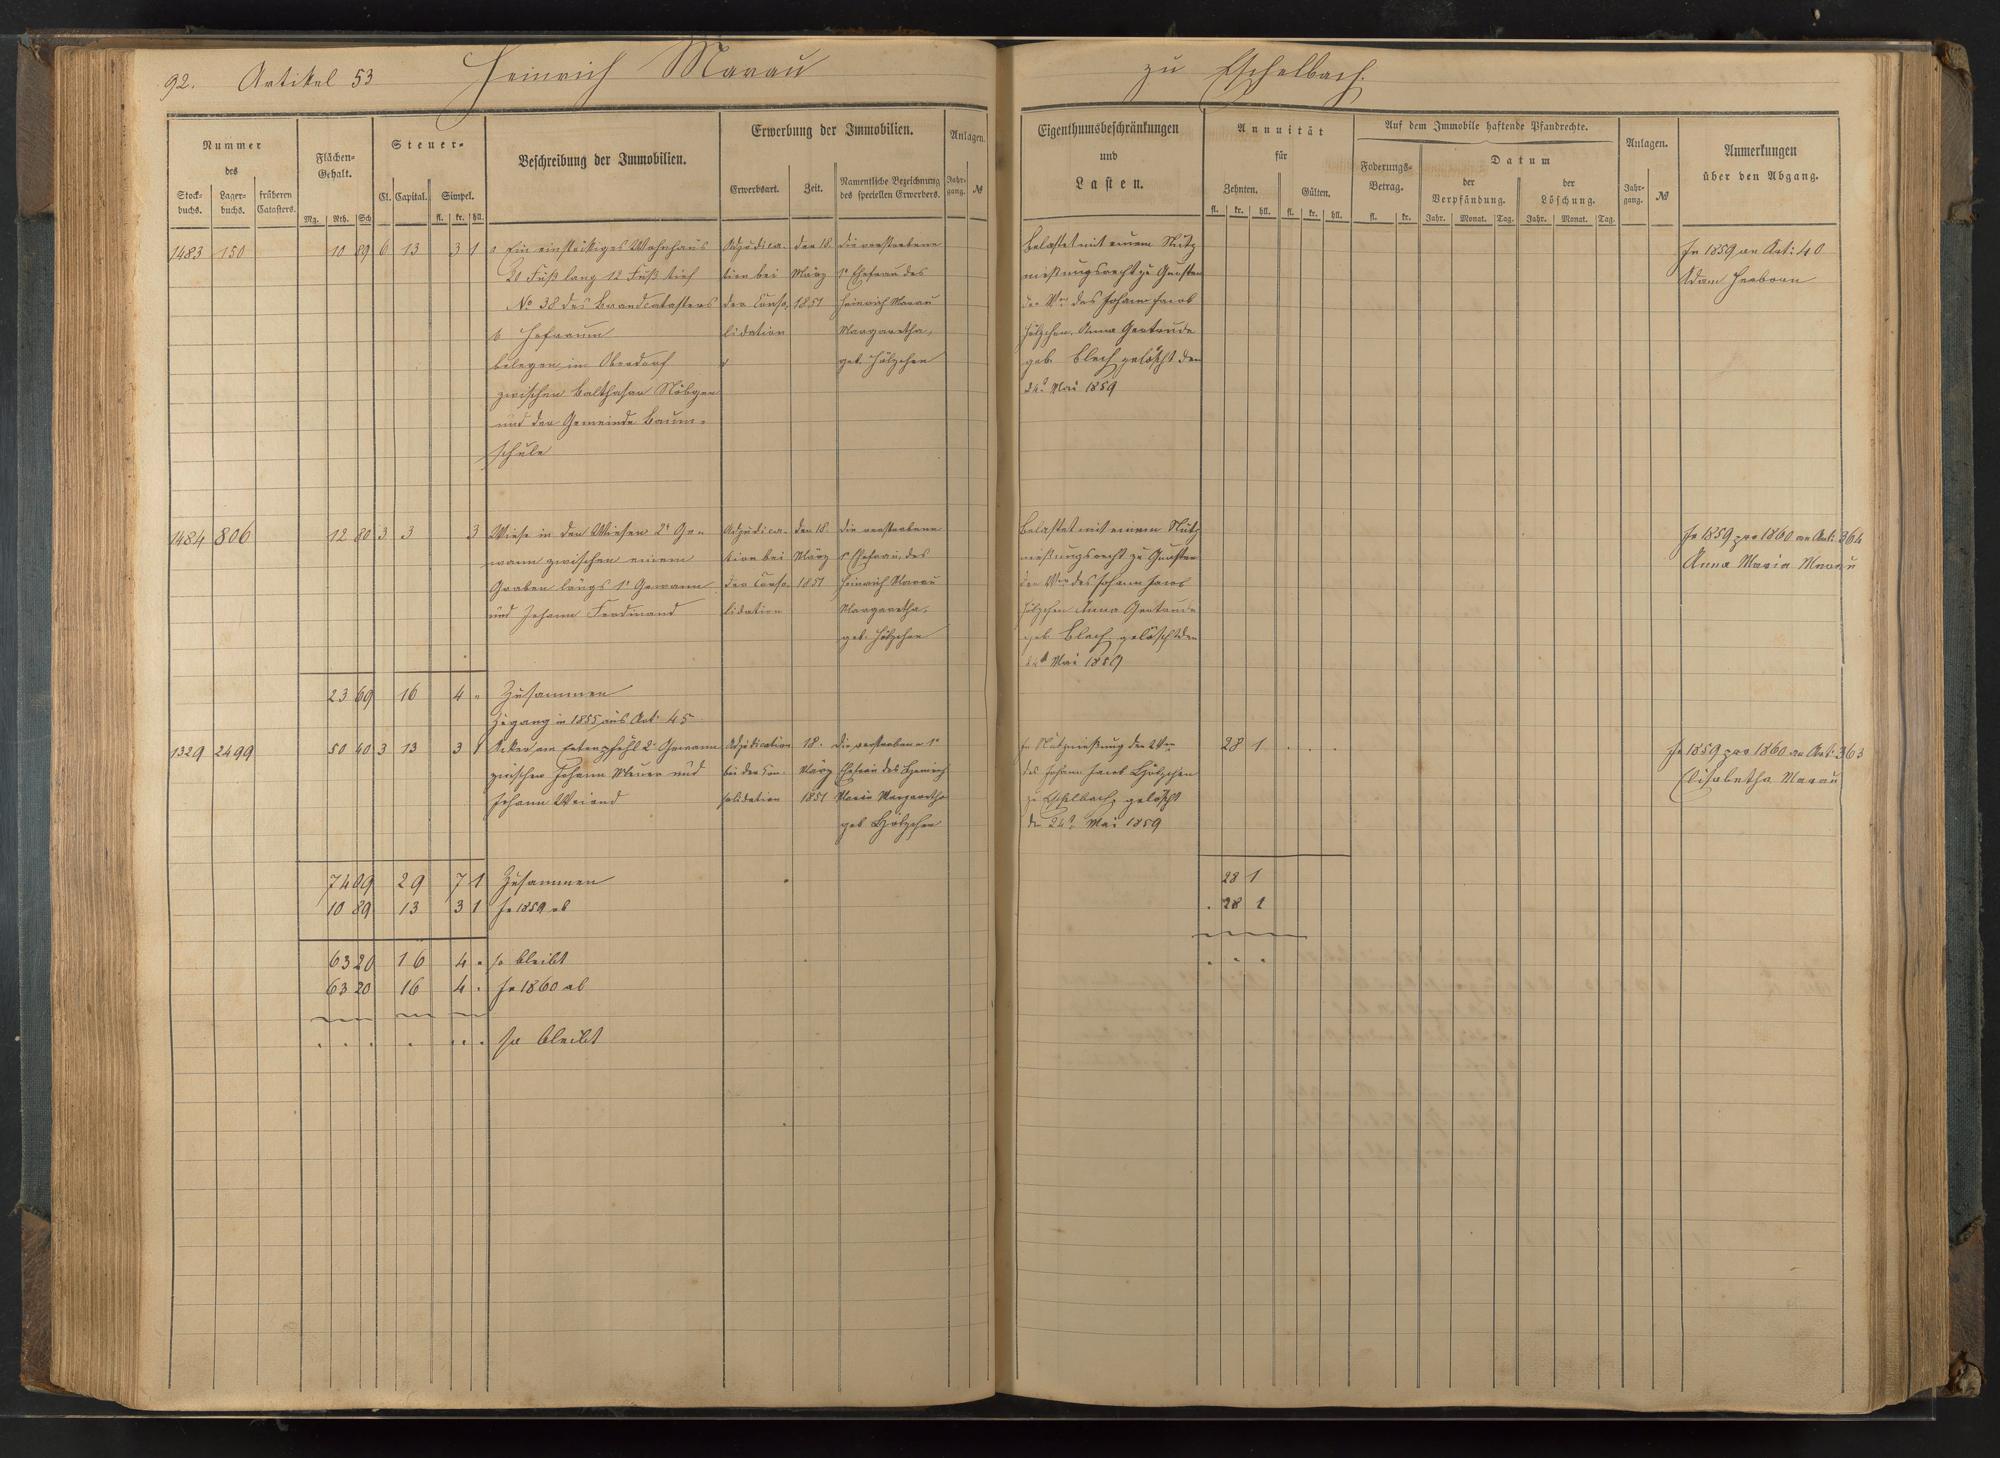 92. Artikel 53 Heinrich Marau zu Eschelbach.
Nummer des
Stock-buchs. Lager-buchs. früheren Catasters.
Flächen-Gehalt.
Mg. Rth. Sch
Steuer-
Cl. Capital. Simpel.
fl. kr. hll.
Beschreibung der Immobilien.
Erwerbung der Immobilien.
Erwerbsart. Zeit. Namentliche Bezeichnung des speciellen Erwerbers.
Anlagen.
Jahr-gang. №
Eigenthumsbeschränkungen und Lasten.
Annuität für
Zehnten. Gülten.
fl. kr. hll. fl. kr. hll.
Auf dem Immobile haftende Pfandrechte.
Foderungs-Betrag.
fl. kr.
Datum
der Verpfändung. der Löschung.
Jahr. Monat. Tag. Jahr. Monat. Tag.
Anlagen.
Jahr-gang. №
Anmerkungen über den Abgang.
1483 150 10 89 6 13 3 1 a Ein einstöckiges Wohnhaus Adjudica- den 18. die verstorbene
Fuß lang 12 Fuß tief tion bei März 1e Ehefrau des
No 38 des Brandcatasters der Conso- 1851 Heinrich Marau
b Hofraum lidation Margaretha,
belegen im Oberdorf geb. Hölzchen
zwischen Balthasar
und der Gemeinde Baum-
schule
Belastet mit einem Nutz
nießungsrecht zu Gunsten
der Wwe des Johann Jacob
Hölzchen, Anna Gertrude
geb. Blech gelöscht den
24t Mai 1859
In 1859 an Art: 40
Adam Herborn
1484 806 12 80 3 3 3 Wiese in den Wiesen 2t Ge- Adjudica- den 18. die verstorbene
wann zwischen einem tion bei März 1e Ehefrau des
Graben längs 1r Gewann der Conso- 1851 Heinrich Marau
und Johann Ferdinand lidation Margaretha,
geb. Hölzchen
Belastet mit einem Nutz
nießungsrecht zu Gunsten
der Wwe des Johann Jacob
Hölzchen Anna Gertrude
geb. Blech gelöscht den
24t Mai 1859
In 1859 pro 1860 an Art: 364
Anna Maria Marau
23 69 16 4 " Zusammen
Zugang in 1855 aus Art. 45
1329 2499 50 40 3 13 3 1 Acker am 2r Gewann Adjudication 18. die verstorbene 1e
zwischen Johann und bei der Con- März Ehefrau des Heinrich
Johann Weiand solidation 1851 Maria Margaretha
geb. Hölzchen
In Nutznießung der Wwe 28 1 . . .
des Johann Jacob Hölzchen
zu Eschelbach, gelöscht
den 24t Mai 1859
In 1859 pro 1860 an Art: 363
Elisabetha Marau
74 09 29 7 1 Zusammen 28 1
10 89 13 3 1 In 1859 ab . 28 1
63 20 16 4 " so bleibt . " "
63 20 16 4 . In 1860 ab
. . . . . . . so bleibt